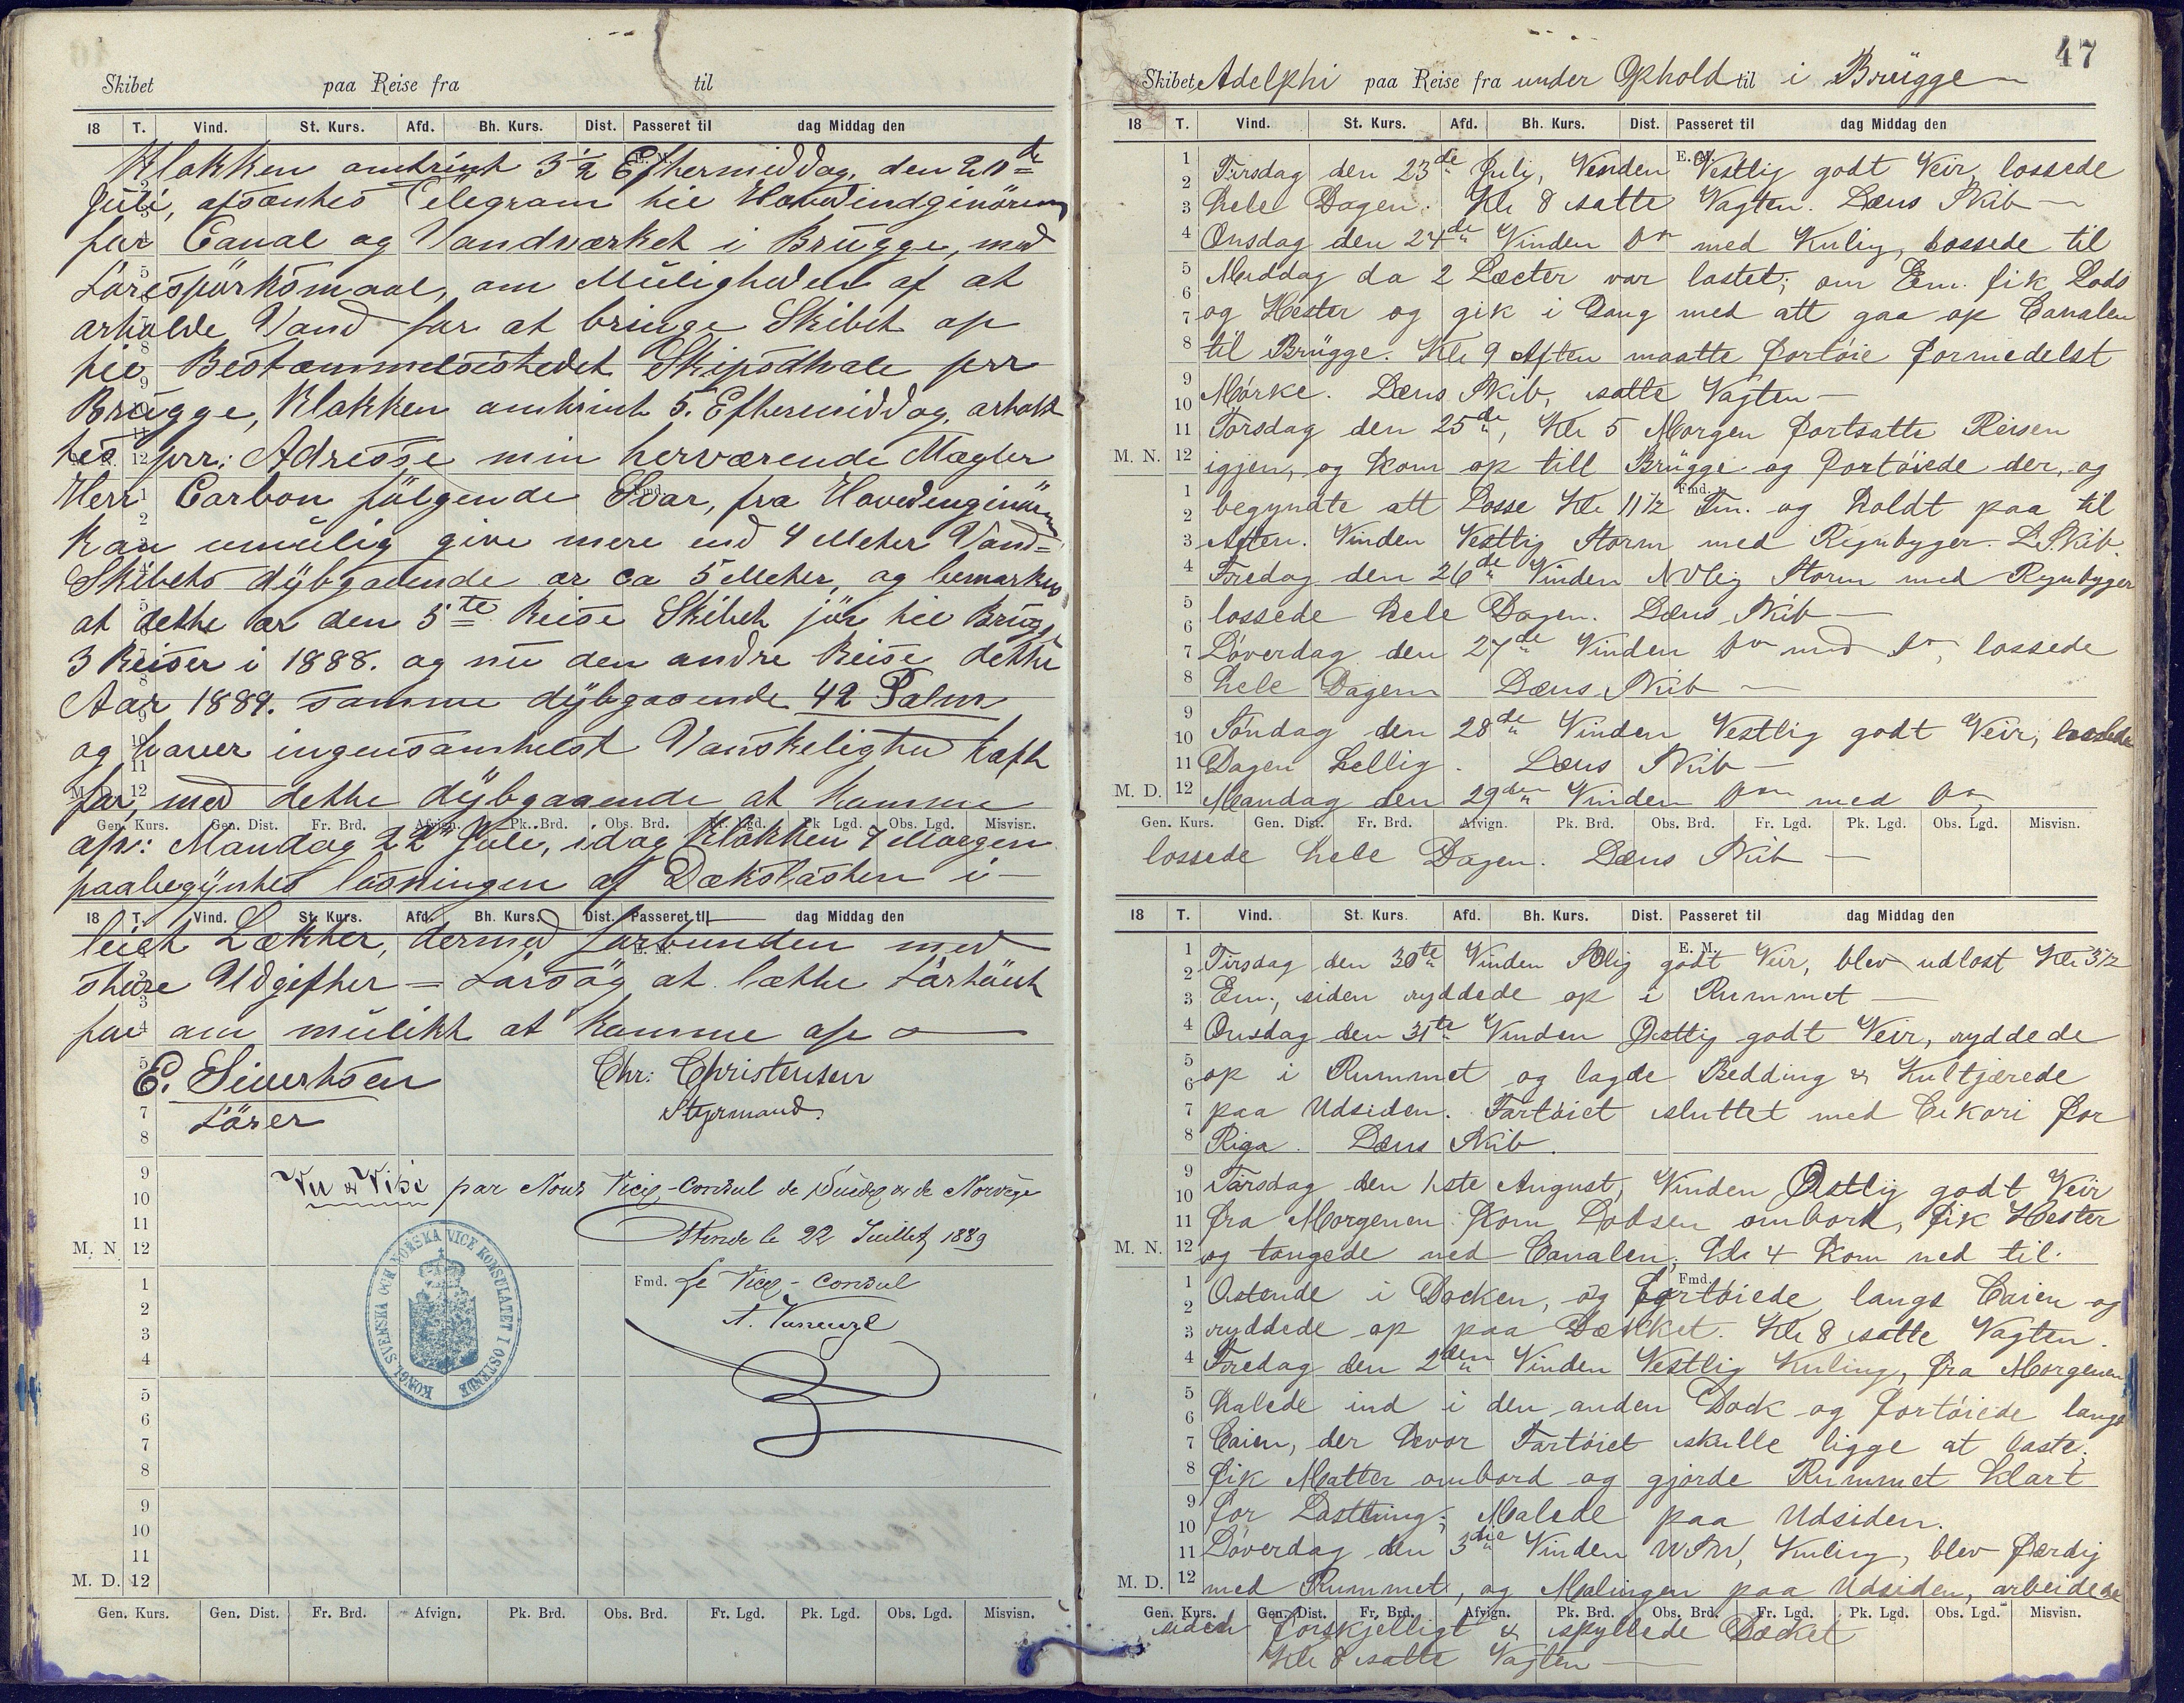 Skibet paa Reise fra til
18 T. Vind. St. Kurs. Afd. Bh. Kurs. Dist. Passeret til dag Middag den
Klokken omtrint 3 1/2 Efthermiddag, den 20de
Juli, afsanthes Telegram til Hovedindginören
for Canal og Vandværket i Brügge, med
Forespörksmaal, om Müligheden af at
arholde Vand for at bringe Skibet op
til Bestammelsesstedet Skipsdhale per
Brügge, Klokken omtrint 5. Efthermiddag, arholt
hes prr: Adresse min herværende Mægler
Herr Carbon fölgende Svar, fra Hovedenginören
Kan umülig give mere end 4 Meter Vand=
Skibets dÿbgaaende ar ca 5 Meter, og bemarkes
at dethe ar den 5te Reise Skibet jör til Brügge
3 Reiser i 1888. og nu den andre Reise dethe
Aar 1889. samme dÿbgaaende 42 Palm
og haver ingensomhelst Vanskelighed hafh
for, med dethe dÿbgaaende at komme
Gen. Kurs. Gen. Dist. Fr. Brd. Afvign. Pk. Brd. Obs. Brd. Fr. Lgd. Pk Lgd. Obs. Lgd. Misvisn.
op: Mandag 22de Juli, idag Klokken 7 Morgen
paabegÿnthes losningen af Dækslasten i
18 T. Vind. St. Kurs. Afd. Bh. Kurs. Dist. Passeret til dag Middag den
leiet Lækther, dermed forbunden med
store Udgifther – Forsög at lætthe Fartöiet
for om mülikt at komme op
E. Sivertsen Chr: Christensen
Förer Styrmand.
Vu & Visé par Nous Vice-Consul de Suède & de Norvège
Ostende le 22 Juillet 1889
Fmd. Le Vice-Consul
KONGL. SVENSKA OCH NORSKA VICE KONSULATET I OSTENDE
M. N. 12
M. D. 12
Gen. Kurs. Gen. Dist. Fr. Brd. Afvign. Pk. Brd. Obs. Brd. Fr. Lgd. Pk. Lgd. Obs. Lgd. Misvisn.
47
Skibet Adelphi paa Reise fra under Ophold til i Brügge
18 T. Vind. St. Kurs. Afd. Bh. Kurs. Dist. Passeret til dag Middag den
Tirsdag den 23de July, Vinden Vestlig godt Veir, lossede
hele Dagen. Kl 8 satte Vagten. Læns Skib
Onsdag den 24de Vinden do med Kulig, lossede til
Middag da 2 Lecter var lastet; om Em. fik Lods
og Hester og gik i Gang med att gaa op Canalen
til Brügge. Kl 9 Aften maatte fortöie formedelst
Mörke. Læns Skib, satte Vagten
Torsdag den 25de, Kl 5 Morgen fortsatte Reisen
igjen, og kom op till Brügge og fortöiede der, og
begyndte att Losse Kl 11 1/2 Fm. og holdt paa til
Aften. Vinden Vestlig Storm med Regnbyger. L. Skib.
Fredag den 26de Vinden NVlig Storm med Regnbyger
lossede hele Dagen. Læns Skib
Löverdag den 27de Vinden do med do, lossede
hele Dagen Læns Skib
Söndag den 28de Vinden Vestlig godt Veir,
Dagen hellig. Læns Skib
Mandag den 29de Vinden do med do,
Gen. Kurs. Gen. Dist. Fr. Brd. Afvign. Pk. Brd. Obs. Brd. Fr. Lgd. Pk. Lgd. Obs. Lgd. Misvisn.
lossede hele Dagen. Læns Skib
18 T. Vind. St. Kurs. Afd. Bh. Kurs. Dist. Passeret til dag Middag den
Tirsdag den 30te Vinden SOlig godt Veir, blev udlost Kl 3 1/2
Em., siden ryddede op i Rummet
Onsdag den 31te Vinden Östlig godt Veir, ryddede
op i Rummet og lagde Bedding & Kultjærede
paa Udsiden. Fartöiet sluttet med Cikori for
Riga. Læns Skib.
Torsdag den 1ste August, Vinden Östlig godt Veir
fra Morgenen kom Lodsen ombord, fik Hester
og tougede ned Canalen; Kl 4 kom ned til
Ostende i Docken, og fortöiede langs Caien og
ryddede op paa Dækket. Kl 8 satte Vagten.
Fredag den 2den Vinden Vestlig Kuling, fra Morgenen
halede ind i den anden Dock og fortöiede langs
Caien, der hvor Fartöiet skulle ligge at laste,
fik Matter ombord og gjorde Rummet klart
for Lastning; Malede paa Udsiden.
Löverdag den 3die Vinden WSW, Kuling, blev færdig
med Rummet, og Malingen paa Udsiden, arbeidede
Gen. Kurs. Gen. Dist. Fr. Brd. Afvign. Pk. Brd. Obs. Brd. Fr. Lgd. Pk. Lgd. Obs. Lgd. Misvisn.
siden forskjelligt & spyllede Dæcket
Kl 8 satte Vagten